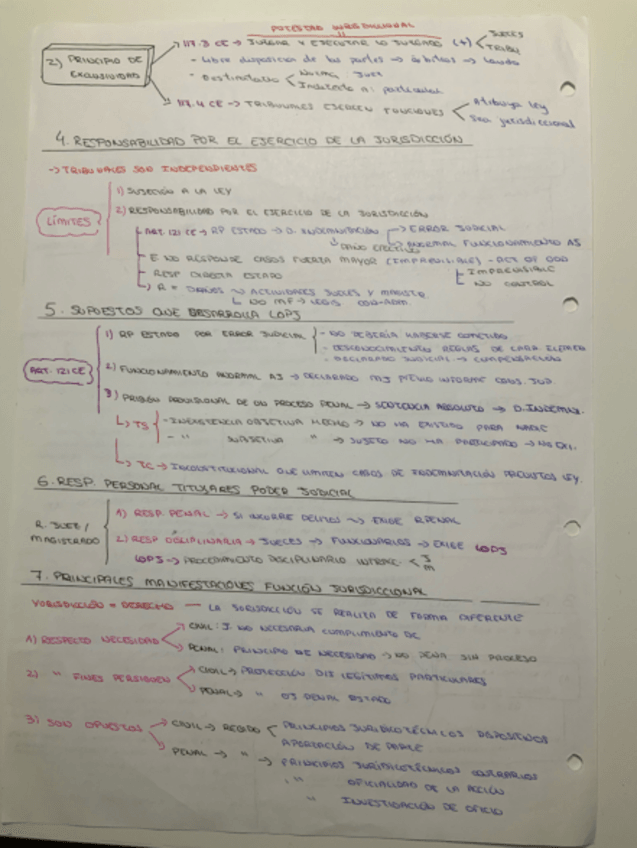 POTESTAD JURISDICCIONAL
2) PRINCIPIO DE EXCLUSIVIDAD
117.3 CE → JUZGAR Y EJECUTAR LO JUZGADO (+) < JUECES
TRIBU
- Libre disposición de las partes → árbitros → laudo
- Destinatario < Norma Juez
Indirecto a: particular
117.4 CE → TRIBUNALES EJERCEN FUNCIONES < Atribuya ley
Sea jurisdiccional
4. RESPONSABILIDAD POR EL EJERCICIO DE LA JURISDICCIÓN
→ TRIBUNALES SON INDEPENDIENTES
LÍMITES
1) SUJECIÓN A LA LEY
2) RESPONSABILIDAD POR EL EJERCICIO DE LA JURISDICCIÓN
ART. 121 CE → RP ESTADO → D. INDEMNIZACIÓN → ERROR JUDICIAL
DAÑO EFECTIVO → ANORMAL FUNCIONAMIENTO AJ
E NO RESPONDE CASOS FUERZA MAYOR (IMPREVISIBLE) - ACT OF GOD
IMPREVISIBLE
RESP DIRECTA ESTADO
NO CONTROL
R = DAÑOS → ACTIVIDADES JUECES Y MAGISTR
NO MF → LEGIS
5. SUPUESTOS QUE DESARROLLA LOPJ
ART. 121 CE
1) RP ESTADO POR ERROR JUDICIAL - NO DEBERÍA HABERSE COMETIDO
- DESCONOCIMIENTO REGLAS DE CARA. ELEMEN
- DECLARADO JUDICIAL → COMPENSACIÓN
2) FUNCIONAMIENTO ANORMAL AJ → DECLARADO MJ PREVIO INFORME CONS. JUD.
3) PRISIÓN PROVISIONAL DE UN PROCESO PENAL → SENTENCIA ABSOLUTO → D. INDEMNI.
TS - INEXISTENCIA OBJETIVA HECHO → NO HA EXISTIDO PARA NADIE
- " SUBJETIVA " → SUJETO NO HA PARTICIPADO →
TC → INCONSTITUCIONAL QUE LIMITEN CASOS DE INDEMNIZACIÓN PREVISTOS LEY.
6. RESP. PERSONAL TITULARES PODER JUDICIAL
R. JUEZ / MAGISTRADO
1) RESP. PENAL → SI INCURRE DELITOS → EXIGE RPENAL
2) RESP DISCIPLINARIA → JUECES → FUNCIONARIOS → EXIGE LOPJ
LOPJ → PROCEDIMIENTO DISCIPLINARIO < J
M
7. PRINCIPALES MANIFESTACIONES FUNCIÓN JURISDICCIONAL
JURISDICCIÓN = DERECHO — LA JURISDICCIÓN SE REALIZA DE FORMA DIFERENTE
1) RESPECTO NECESIDAD
CIVIL: J. NO NECESARIA CUMPLIMIENTO DE
PENAL: PRINCIPIO DE NECESIDAD → NO PENA SIN PROCESO
2) " FINES PERSIGUEN
CIVIL → PROTECCIÓN LEGÍTIMOS PARTICULARES
PENAL → " PENAL ESTADO
3) SON OPUESTOS
CIVIL → REGIDO < PRINCIPIOS JURIDICOTÉCNICOS DISPOSITIVOS
APORTACIÓN DE PARTE
PENAL → " → PRINCIPIOS JURIDICOTÉCNICOS CONTRARIOS
" OFICIALIDAD DE LA ACCIÓN
" INVESTIGACIÓN DE OFICIO